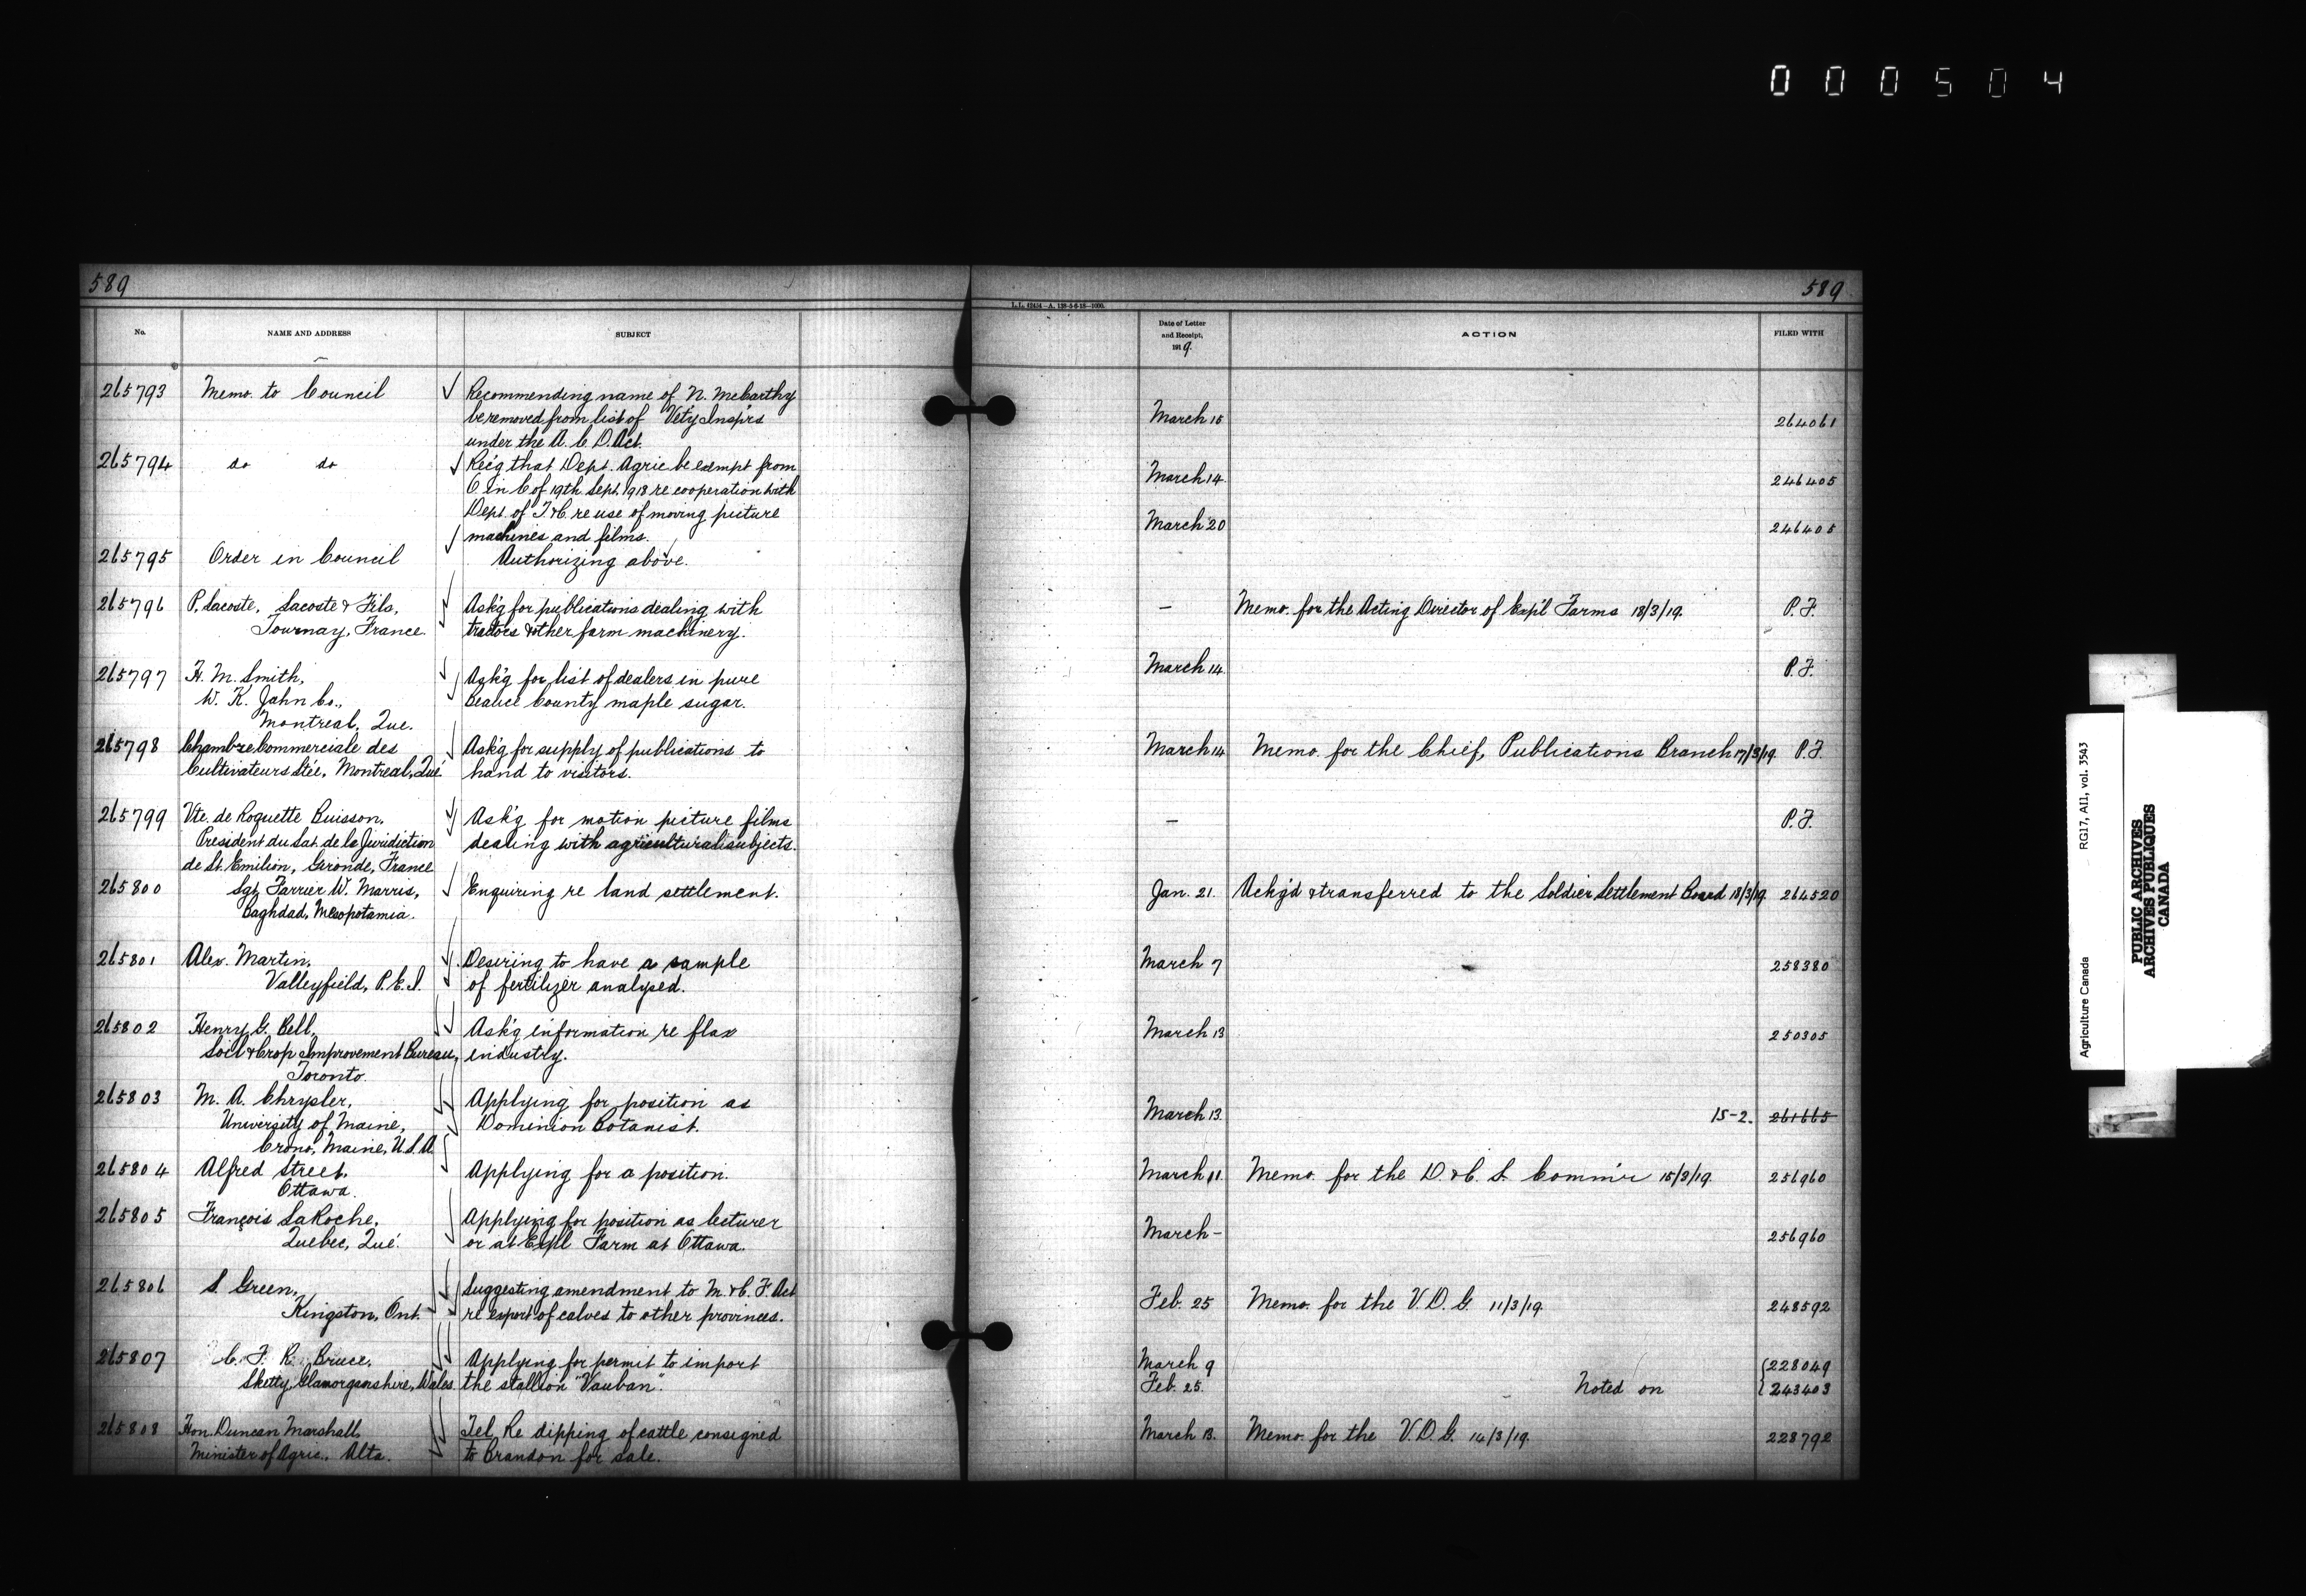 000504
589
589
L.L. 62434-A. 138-5-6-18-1000.
No.
NAME AND ADDRESS
SUBJECT
Date of Letter
and Receipt,
1919.
ACTION
FILED WITH
265793 Memo. to Council Recommending name of N. McCarthy
be removed from list of Vet'y Insp'rs March 15 264061
under the A. C. D. Act.
265794 do do Rec'g that Dept. Agric be exempt from
O in C of 19th Sept. 1918 re cooperation with March 14. 246405
Dept. of T & C. re use of moving picture
machines and films. March 20 246405
265795 Order in Council Authorizing above.
265796 P. Lacoste, Lacoste & Fils, Ask'g for publications dealing with — Memo. for the Acting Director of Exp'l Farms 18/3/19. P.F.
Tournay, France. tractors & other farm machinery.
265797 H. M. Smith, Ask'g for list of dealers in pure March 14. P.F.
W. K. Jahn Co., Beauce County maple sugar.
Montreal, Que.
265798 Chambre Commerciale des Ask'g for supply of publications to March 14 Memo. for the Chief, Publications Branch 17/3/19. P.F.
Cultivateurs Ltée, Montreal, Qué. hand to visitors.
265799 Vte. de Roquette Buisson, Ask'g for motion picture films — P.F.
President du de la Juridiction dealing with agricultural subjects.
de St. Emilion, Gironde, France
265800 Sgt. Farrier W. Marris, Enquiring re land settlement. Jan. 21. Ackg'd & transferred to the Soldier Settlement Board 18/3/19. 264520
Baghdad, Mesopotamia.
265801 Alex. Martin, Desiring to have a sample March 7 258380
Valleyfield, P.E.I. of fertilizer analysed.
265802 Henry G. Bell, Ask'g information re flax March 13 250305
Soil & Crop Improvement Bureau, industry.
Toronto.
265803 M. A. Chrysler, Applying for position as
University of Maine, Dominion Botanist. March 13. 15-2. 261665
Orono, Maine, U.S.A.
265804 Alfred Street, Applying for a position. March 11. Memo. for the D. & C. S. Comm'r 15/3/19. 256960
Ottawa.
265805 François LaRoche, Applying for position as lecturer
Quebec, Qué. or at Exp'l Farm at Ottawa. March - 256960
265806 S. Green, Suggesting amendment to M. & C. F. Act
Kingston, Ont. re export of calves to other provinces. Feb. 25 Memo. for the V.D.G. 11/3/19. 248592
265807 C. F. R. Bruce, Applying for permit to import March 9 228049
Sketty, Glamorganshire, Wales. the stallion "Vauban". Feb. 25. Noted on 243403
265808 Hon. Duncan Marshall, Tel. Re dipping of cattle consigned March 13. Memo. for the V.D.G. 14/3/19. 228792
Minister of Agric., Alta. to Brandon for sale.
Agriculture Canada RG17, AII, vol. 3543
PUBLIC ARCHIVES
ARCHIVES PUBLIQUES
CANADA